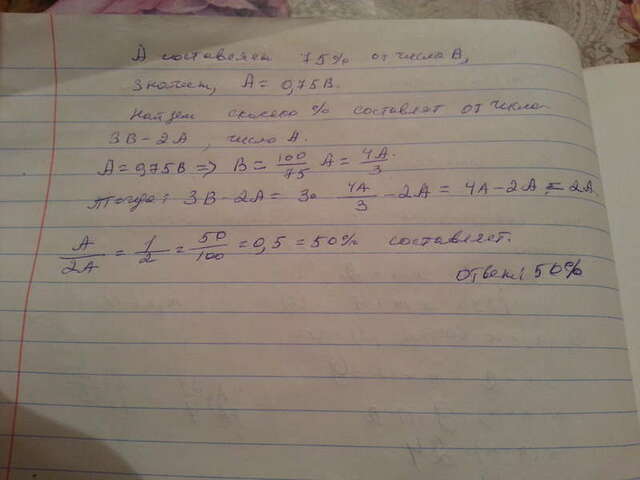 A составляет 75% от числа B,
значит, A = 0,75B.
Найдем сколько % составляет от числа
3B - 2A, число A.
A = 0,75B => B = 100/75 A = 4A/3.
Тогда: 3B - 2A = 3 · 4A/3 - 2A = 4A - 2A = 2A.
A/2A = 1/2 = 50/100 = 0,5 = 50% составляет.
Ответ: 50%